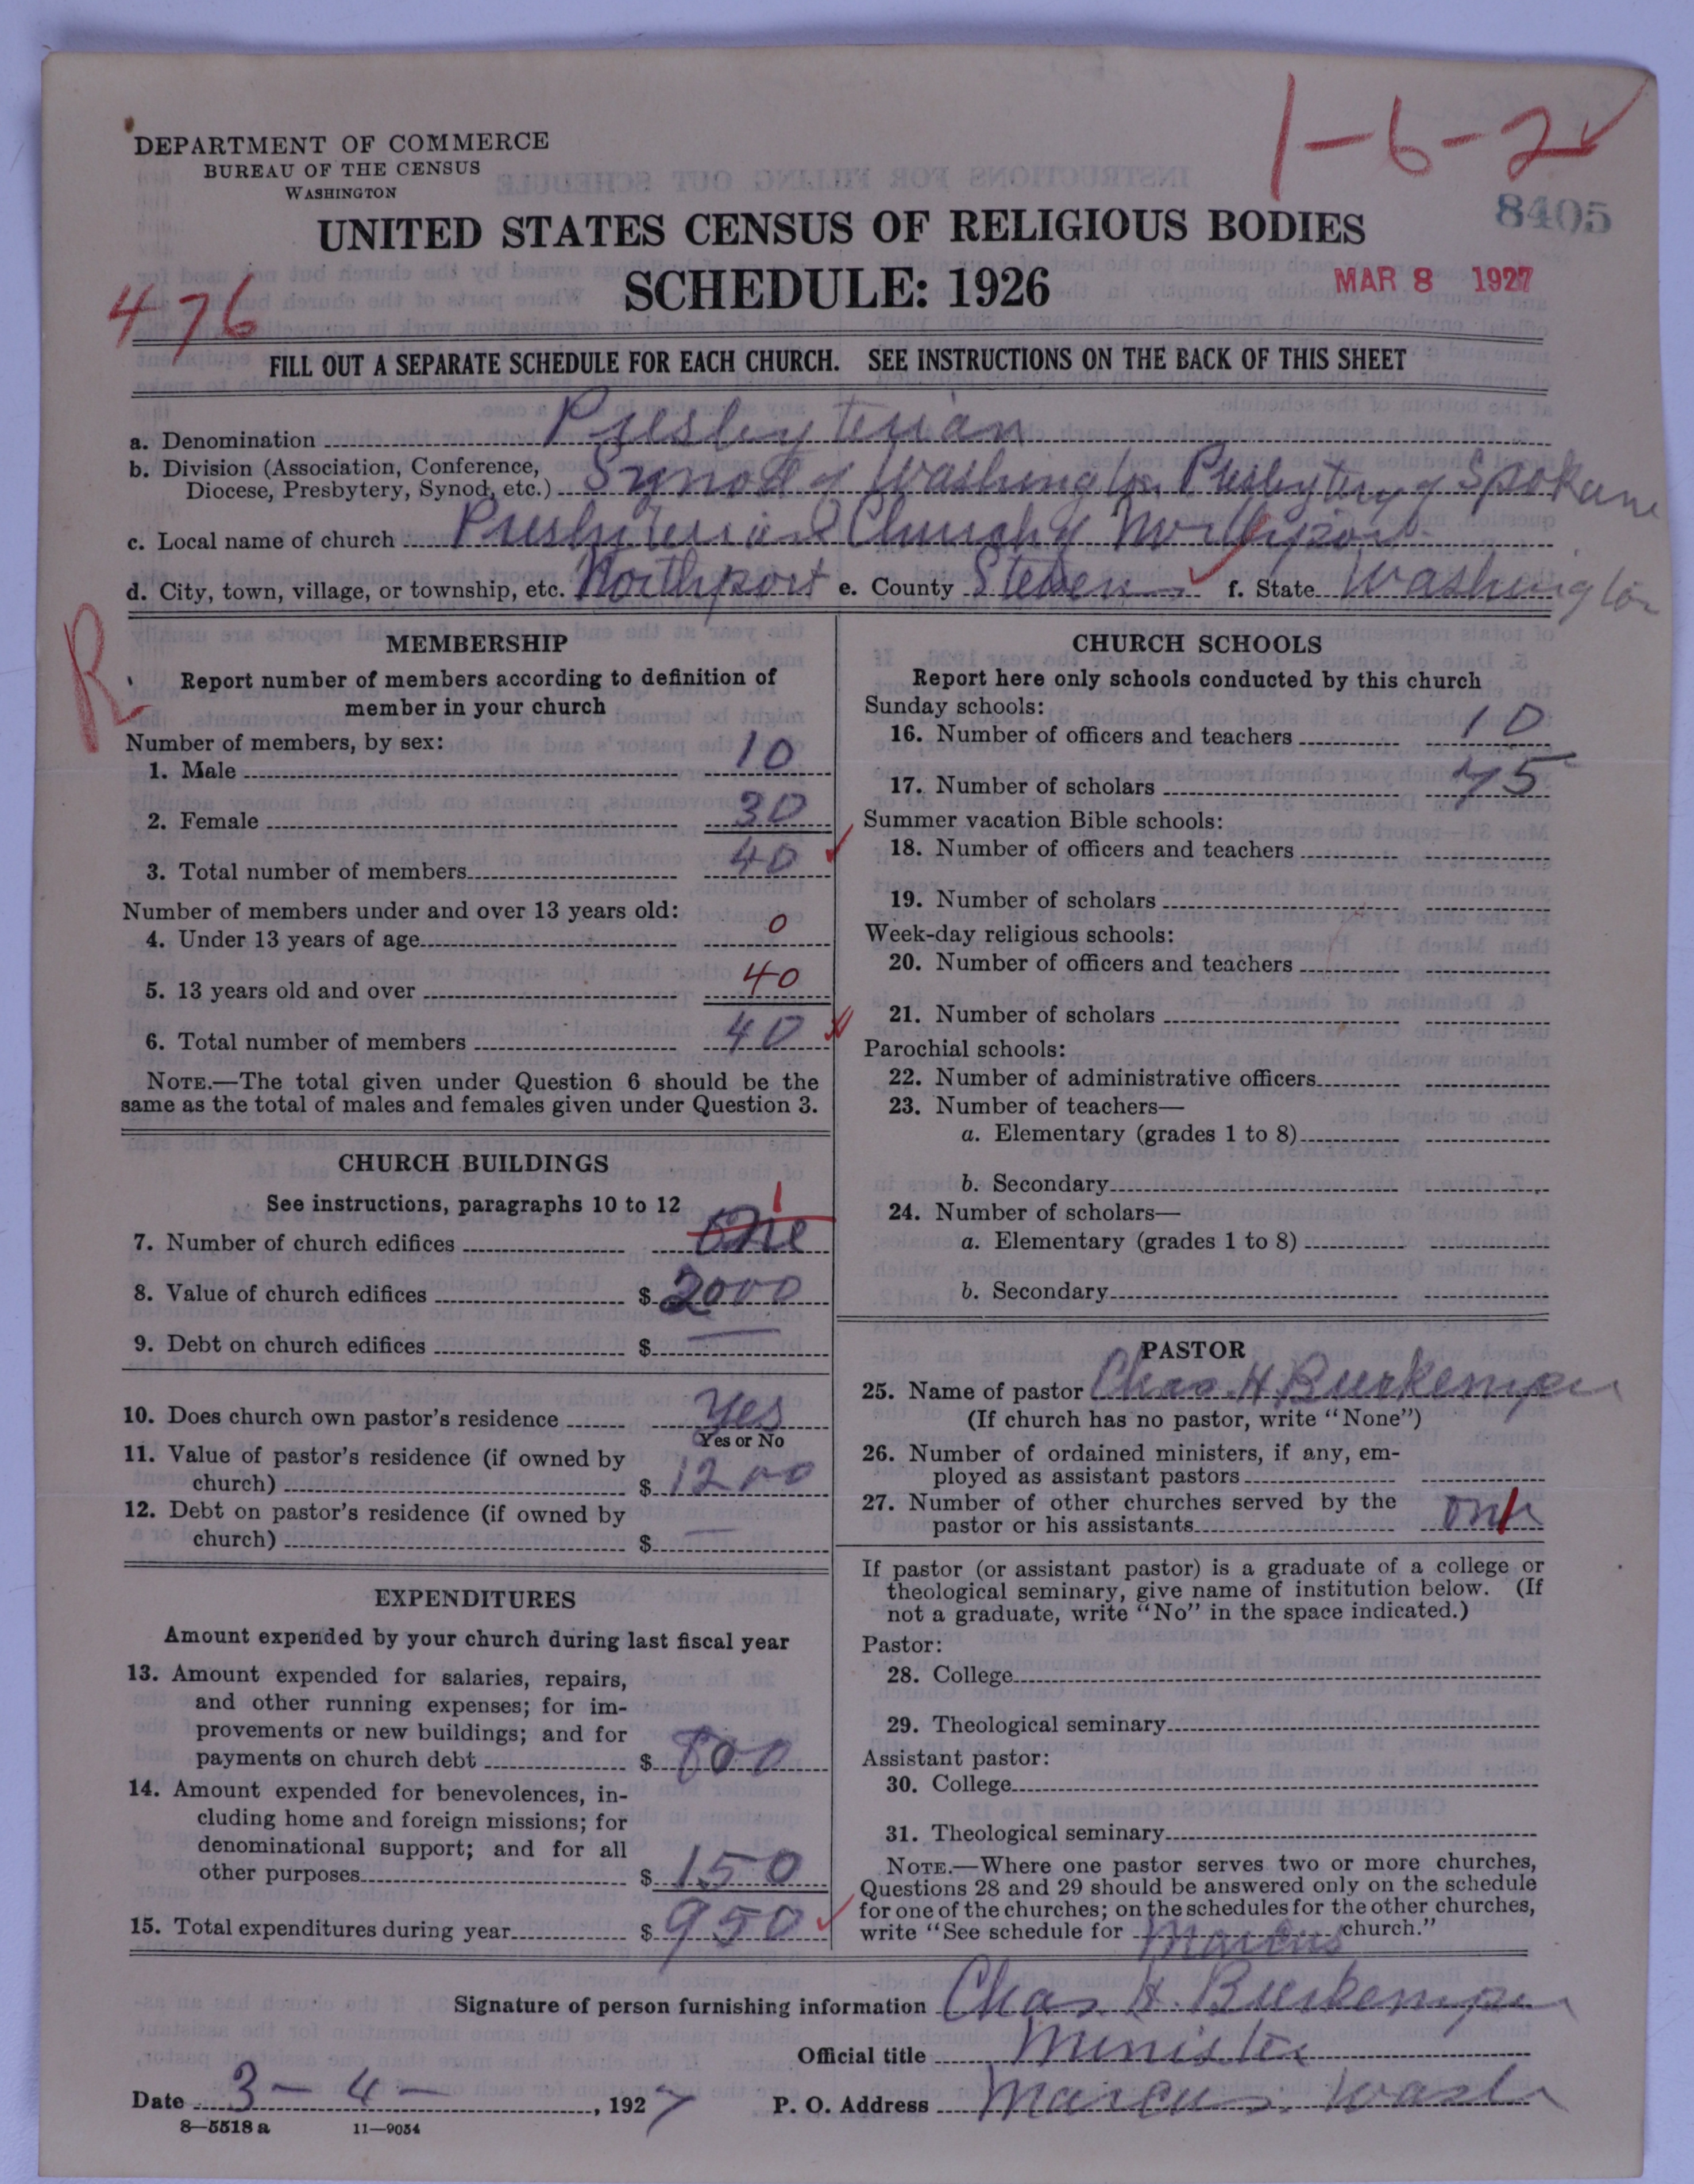 1-6-2
DEPARTMENT OF COMMERCE
BUREAU OF THE CENSUS
WASHINGTON
8405
UNITED STATES CENSUS OF RELIGIOUS BODIES
SCHEDULE: 1926
MAR 8 1927
476
FILL OUT A SEPARATE SCHEDULE FOR EACH CHURCH. SEE INSTRUCTIONS ON THE BACK OF THIS SHEET
a. Denomination Presbyterian
b. Division (Association, Conference,
Diocese, Presbytery, Synod, etc.) Synod of Washington Presbytery of Spokane
c. Local name of church Presbyterian Church of Northport
d. City, town, village, or township, etc. Northport e. County Stevens f. State Washington
R
MEMBERSHIP
Report number of members according to definition of
member in your church
Number of members, by sex:
1. Male 10
2. Female 30
3. Total number of members 40
Number of members under and over 13 years old:
4. Under 13 years of age 0
5. 13 years old and over 40
6. Total number of members 40
NOTE.—The total given under Question 6 should be the
same as the total of males and females given under Question 3.
CHURCH BUILDINGS
See instructions, paragraphs 10 to 12
1
7. Number of church edifices One
8. Value of church edifices $ 2000
9. Debt on church edifices $ —
10. Does church own pastor's residence Yes
Yes or No
11. Value of pastor's residence (if owned by
church) $ 1200
12. Debt on pastor's residence (if owned by
church) $ —
EXPENDITURES
Amount expended by your church during last fiscal year
13. Amount expended for salaries, repairs,
and other running expenses; for im-
provements or new buildings; and for
payments on church debt $ 800
14. Amount expended for benevolences, in-
cluding home and foreign missions; for
denominational support; and for all
other purposes $ 150
15. Total expenditures during year $ 950
CHURCH SCHOOLS
Report here only schools conducted by this church
Sunday schools:
16. Number of officers and teachers 10
17. Number of scholars 75
Summer vacation Bible schools:
18. Number of officers and teachers
19. Number of scholars
Week-day religious schools:
20. Number of officers and teachers
21. Number of scholars
Parochial schools:
22. Number of administrative officers
23. Number of teachers—
a. Elementary (grades 1 to 8)
b. Secondary
24. Number of scholars—
a. Elementary (grades 1 to 8)
b. Secondary
PASTOR
25. Name of pastor Chas. H. Burkemper
(If church has no pastor, write "None")
26. Number of ordained ministers, if any, em-
ployed as assistant pastors
27. Number of other churches served by the
pastor or his assistants one 1
If pastor (or assistant pastor) is a graduate of a college or
theological seminary, give name of institution below. (If
not a graduate, write "No" in the space indicated.)
Pastor:
28. College
29. Theological seminary
Assistant pastor:
30. College
31. Theological seminary
NOTE.—Where one pastor serves two or more churches,
Questions 28 and 29 should be answered only on the schedule
for one of the churches; on the schedules for the other churches,
write "See schedule for Marcus church."
Signature of person furnishing information Chas. H. Burkemper
Official title Minister
Date 3-4-, 1927 P. O. Address Marcus. Wash
8—5518a 11—9054